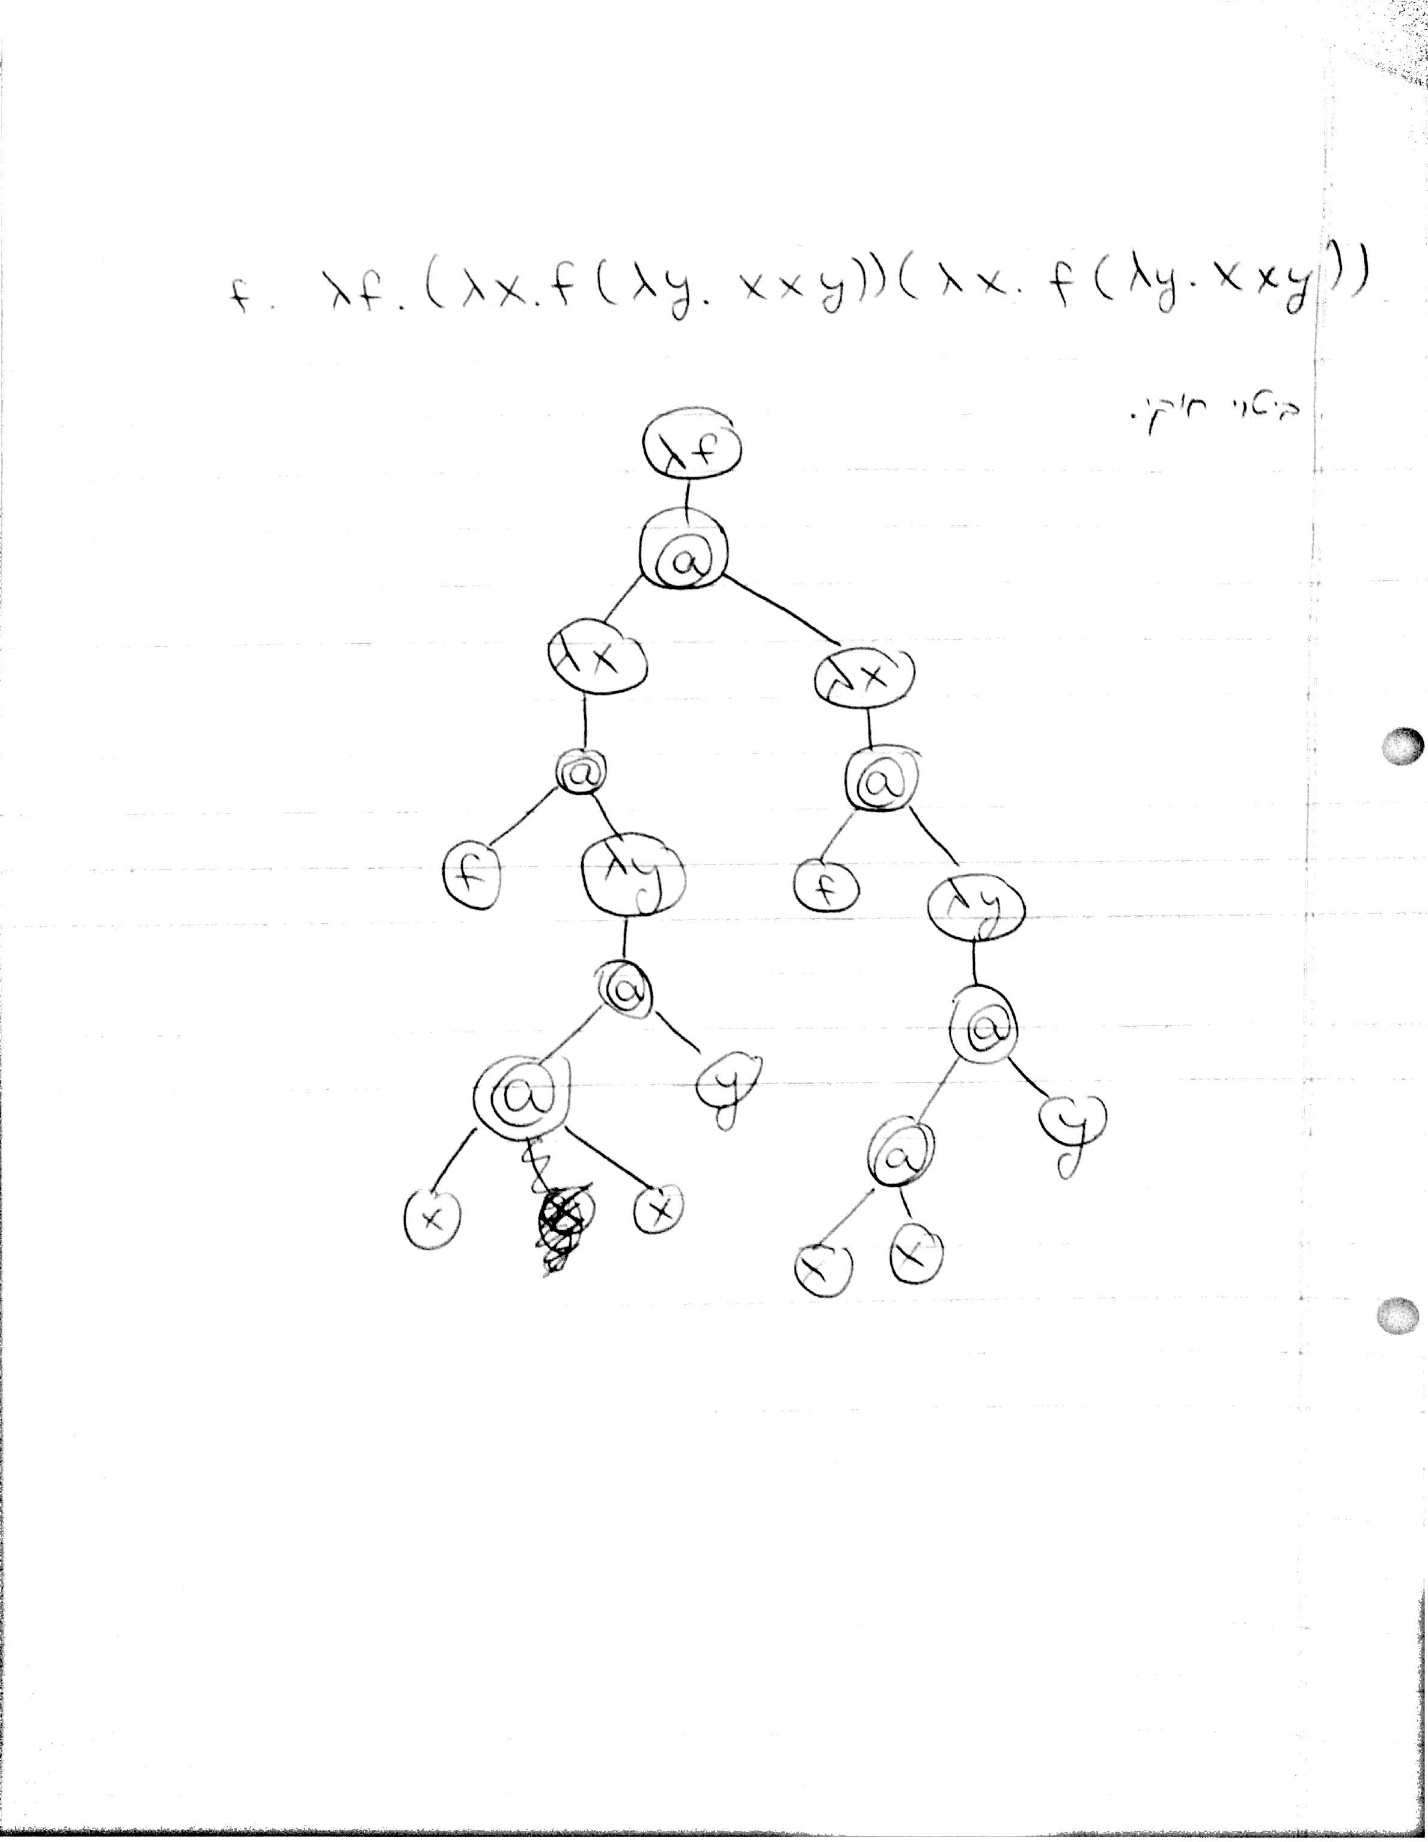 f. λf.(λx.f(λy. xxy))(λx. f(λy.xxy))
ביטוי חוקי.
λf
@
λx λx
@ @
f λy f λy
@ @
@ y @ y
x x x x